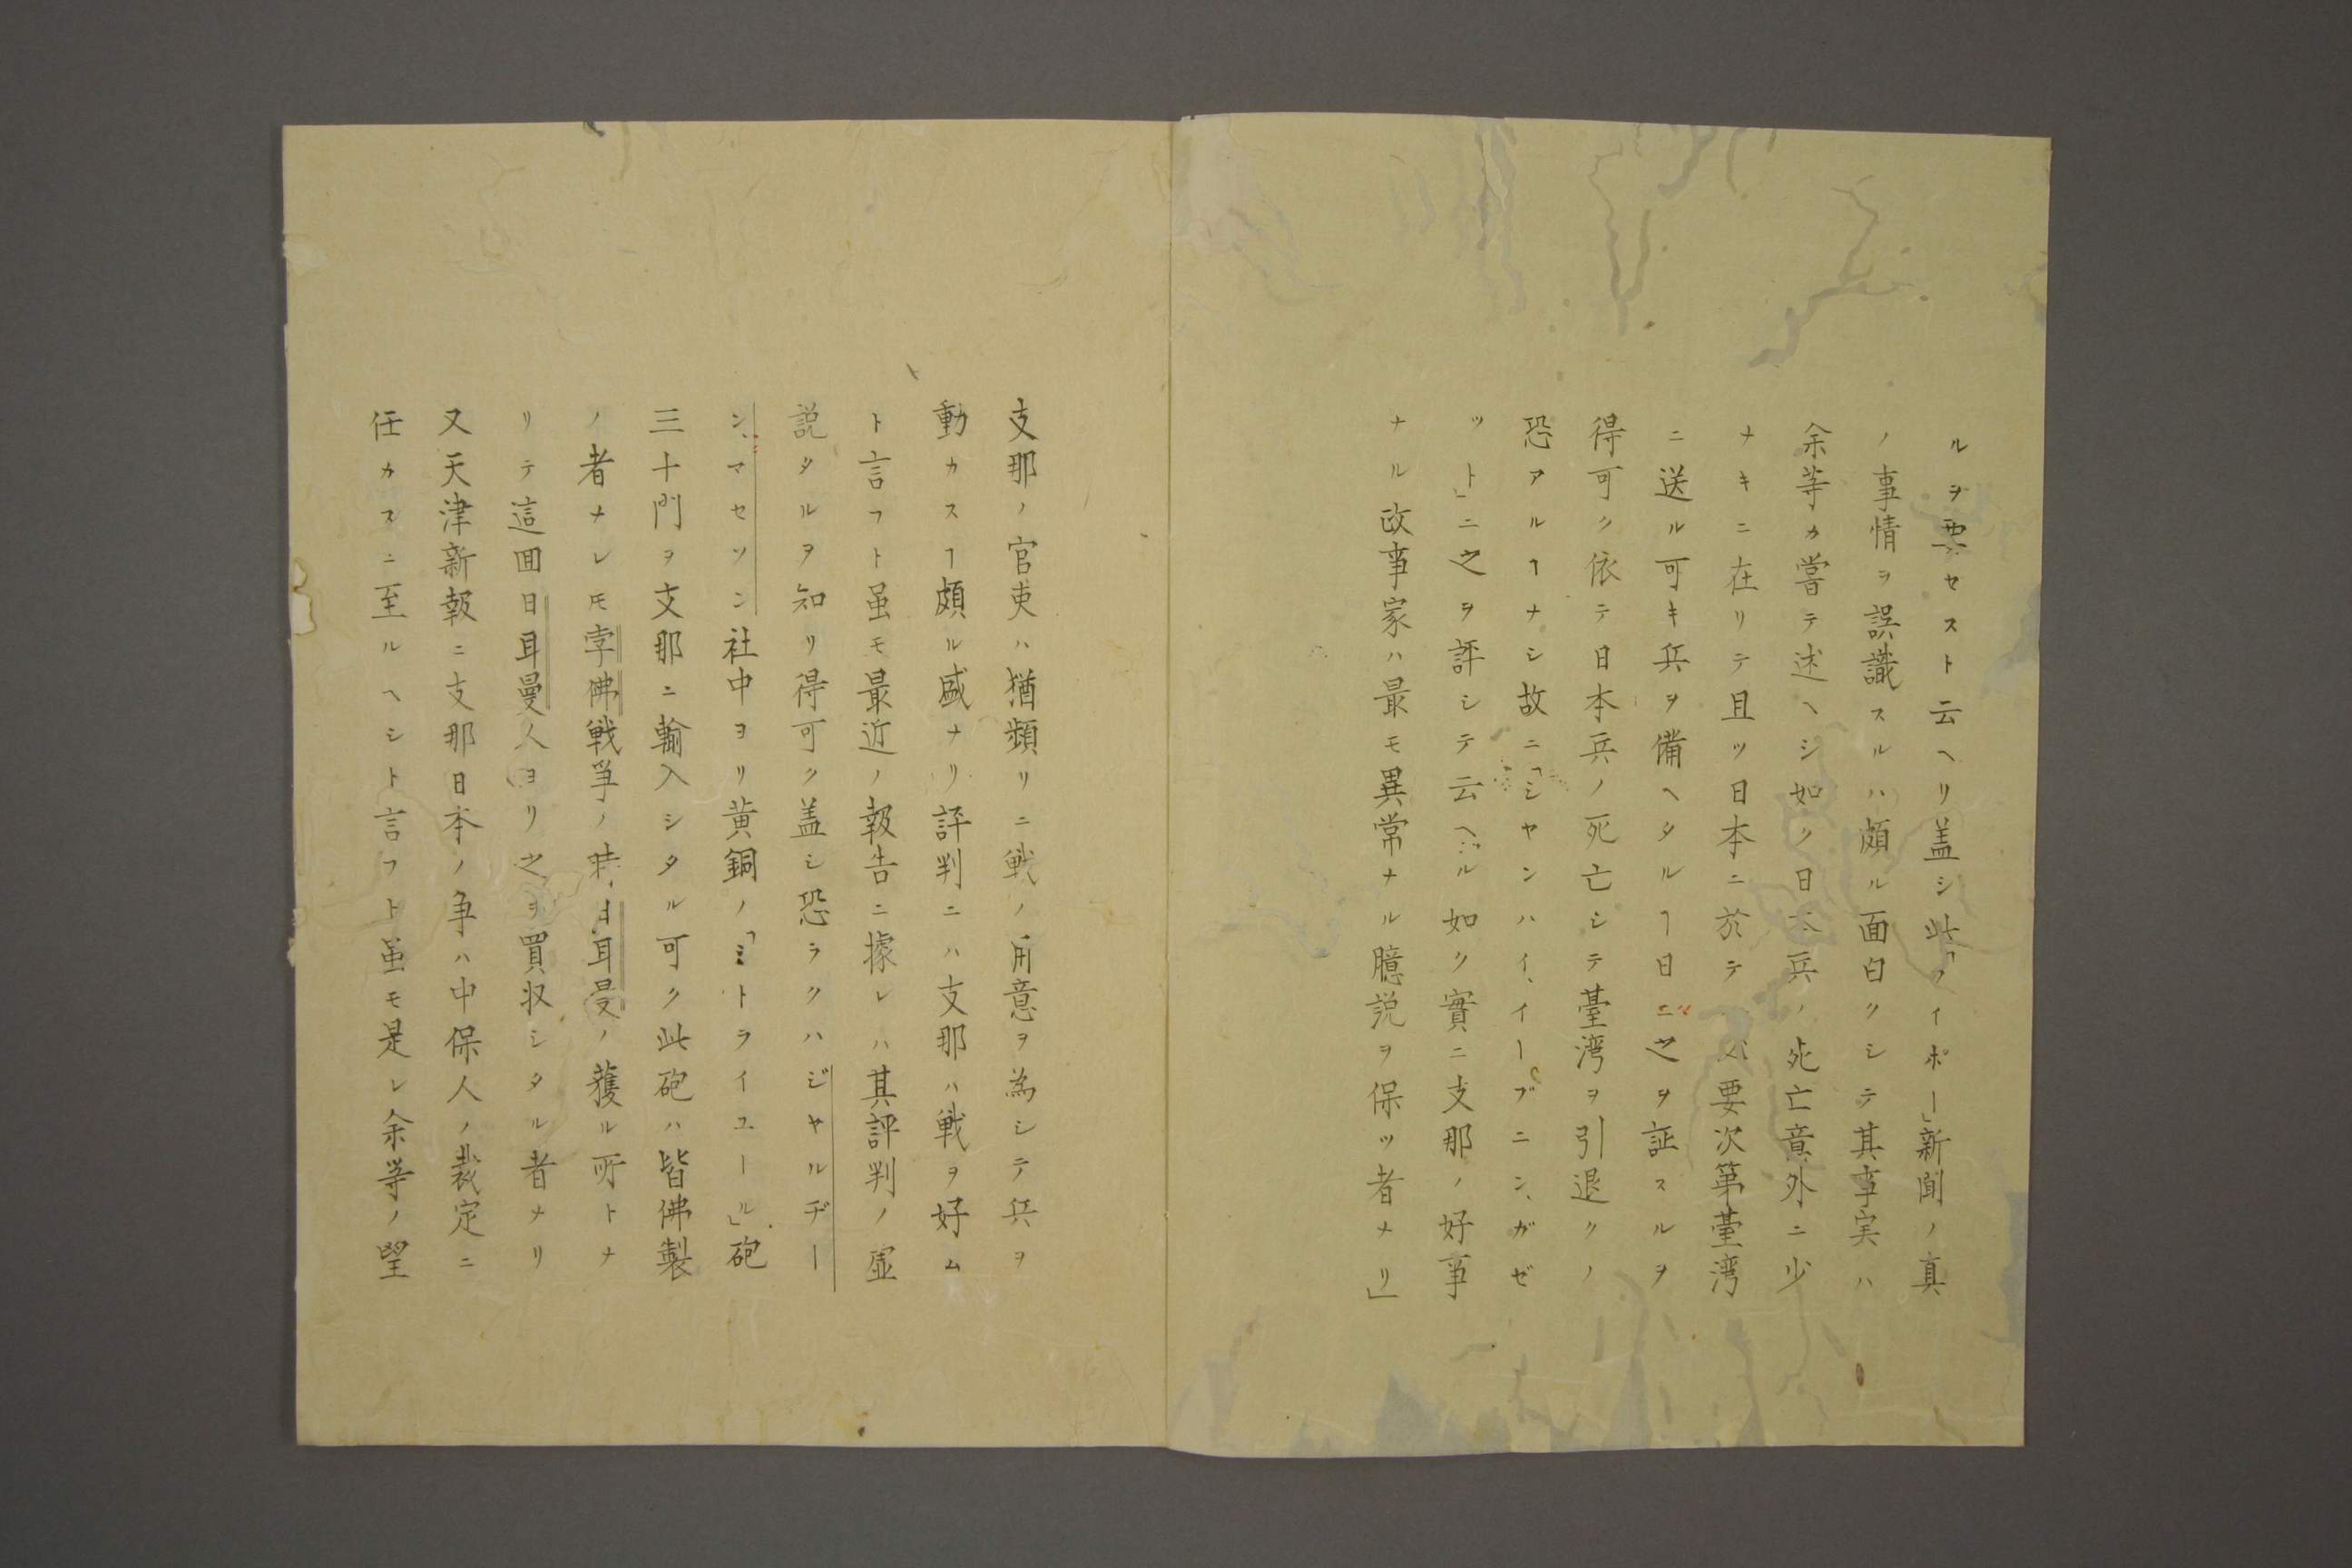 ルヲ要セスト云ヘリ盖シ此「フイポー」新聞ノ真
ノ事情ヲ誤識スルハ頗ル面白クシテ其事実ハ
余等カ嘗テ述ヘシ如ク日本兵ノ死亡意外ニ少
ナキニ在リテ且ツ日本ニ於テハ要次第臺湾
ニ送ル可キ兵ヲ備ヘタルヿ日ニ之ヲ証スルヲ
得可ク依テ日本兵ノ死亡シテ臺湾ヲ引退クノ
恐アルヿナシ故ニ「シヤンハイ、イーブニン、ガゼ
ット」ニ之ヲ評シテ云ヘル如ク實ニ支那ノ好事
ナル政事家ハ最モ異常ナル臆説ヲ保ツ者ナリ」
支那ノ官吏ハ猶頻リニ戦ノ用意ヲ為シテ兵ヲ
動カスヿ頗ル盛ナリ評判ニハ支那ハ戦ヲ好ム
ト言フト虽モ最近ノ報告ニ據レハ其評判ノ虚
説タルヲ知リ得可ク盖シ恐ラクハジヤルヂー
ン、マセソン社中ヨリ黄銅ノ「ミトライユール」砲
三十門ヲ支那ニ輸入シタル可ク此砲ハ皆佛製
ノ者ナレ𪜈孛佛戦爭ノ時日耳曼ノ獲ル所トナ
リテ這囬日耳曼人ヨリ之ヲ買収シタル者ナリ
又天津新報ニ支那日本ノ争ハ中保人ノ裁定ニ
任カスニ至ルヘシト言フト虽モ是レ余等ノ望